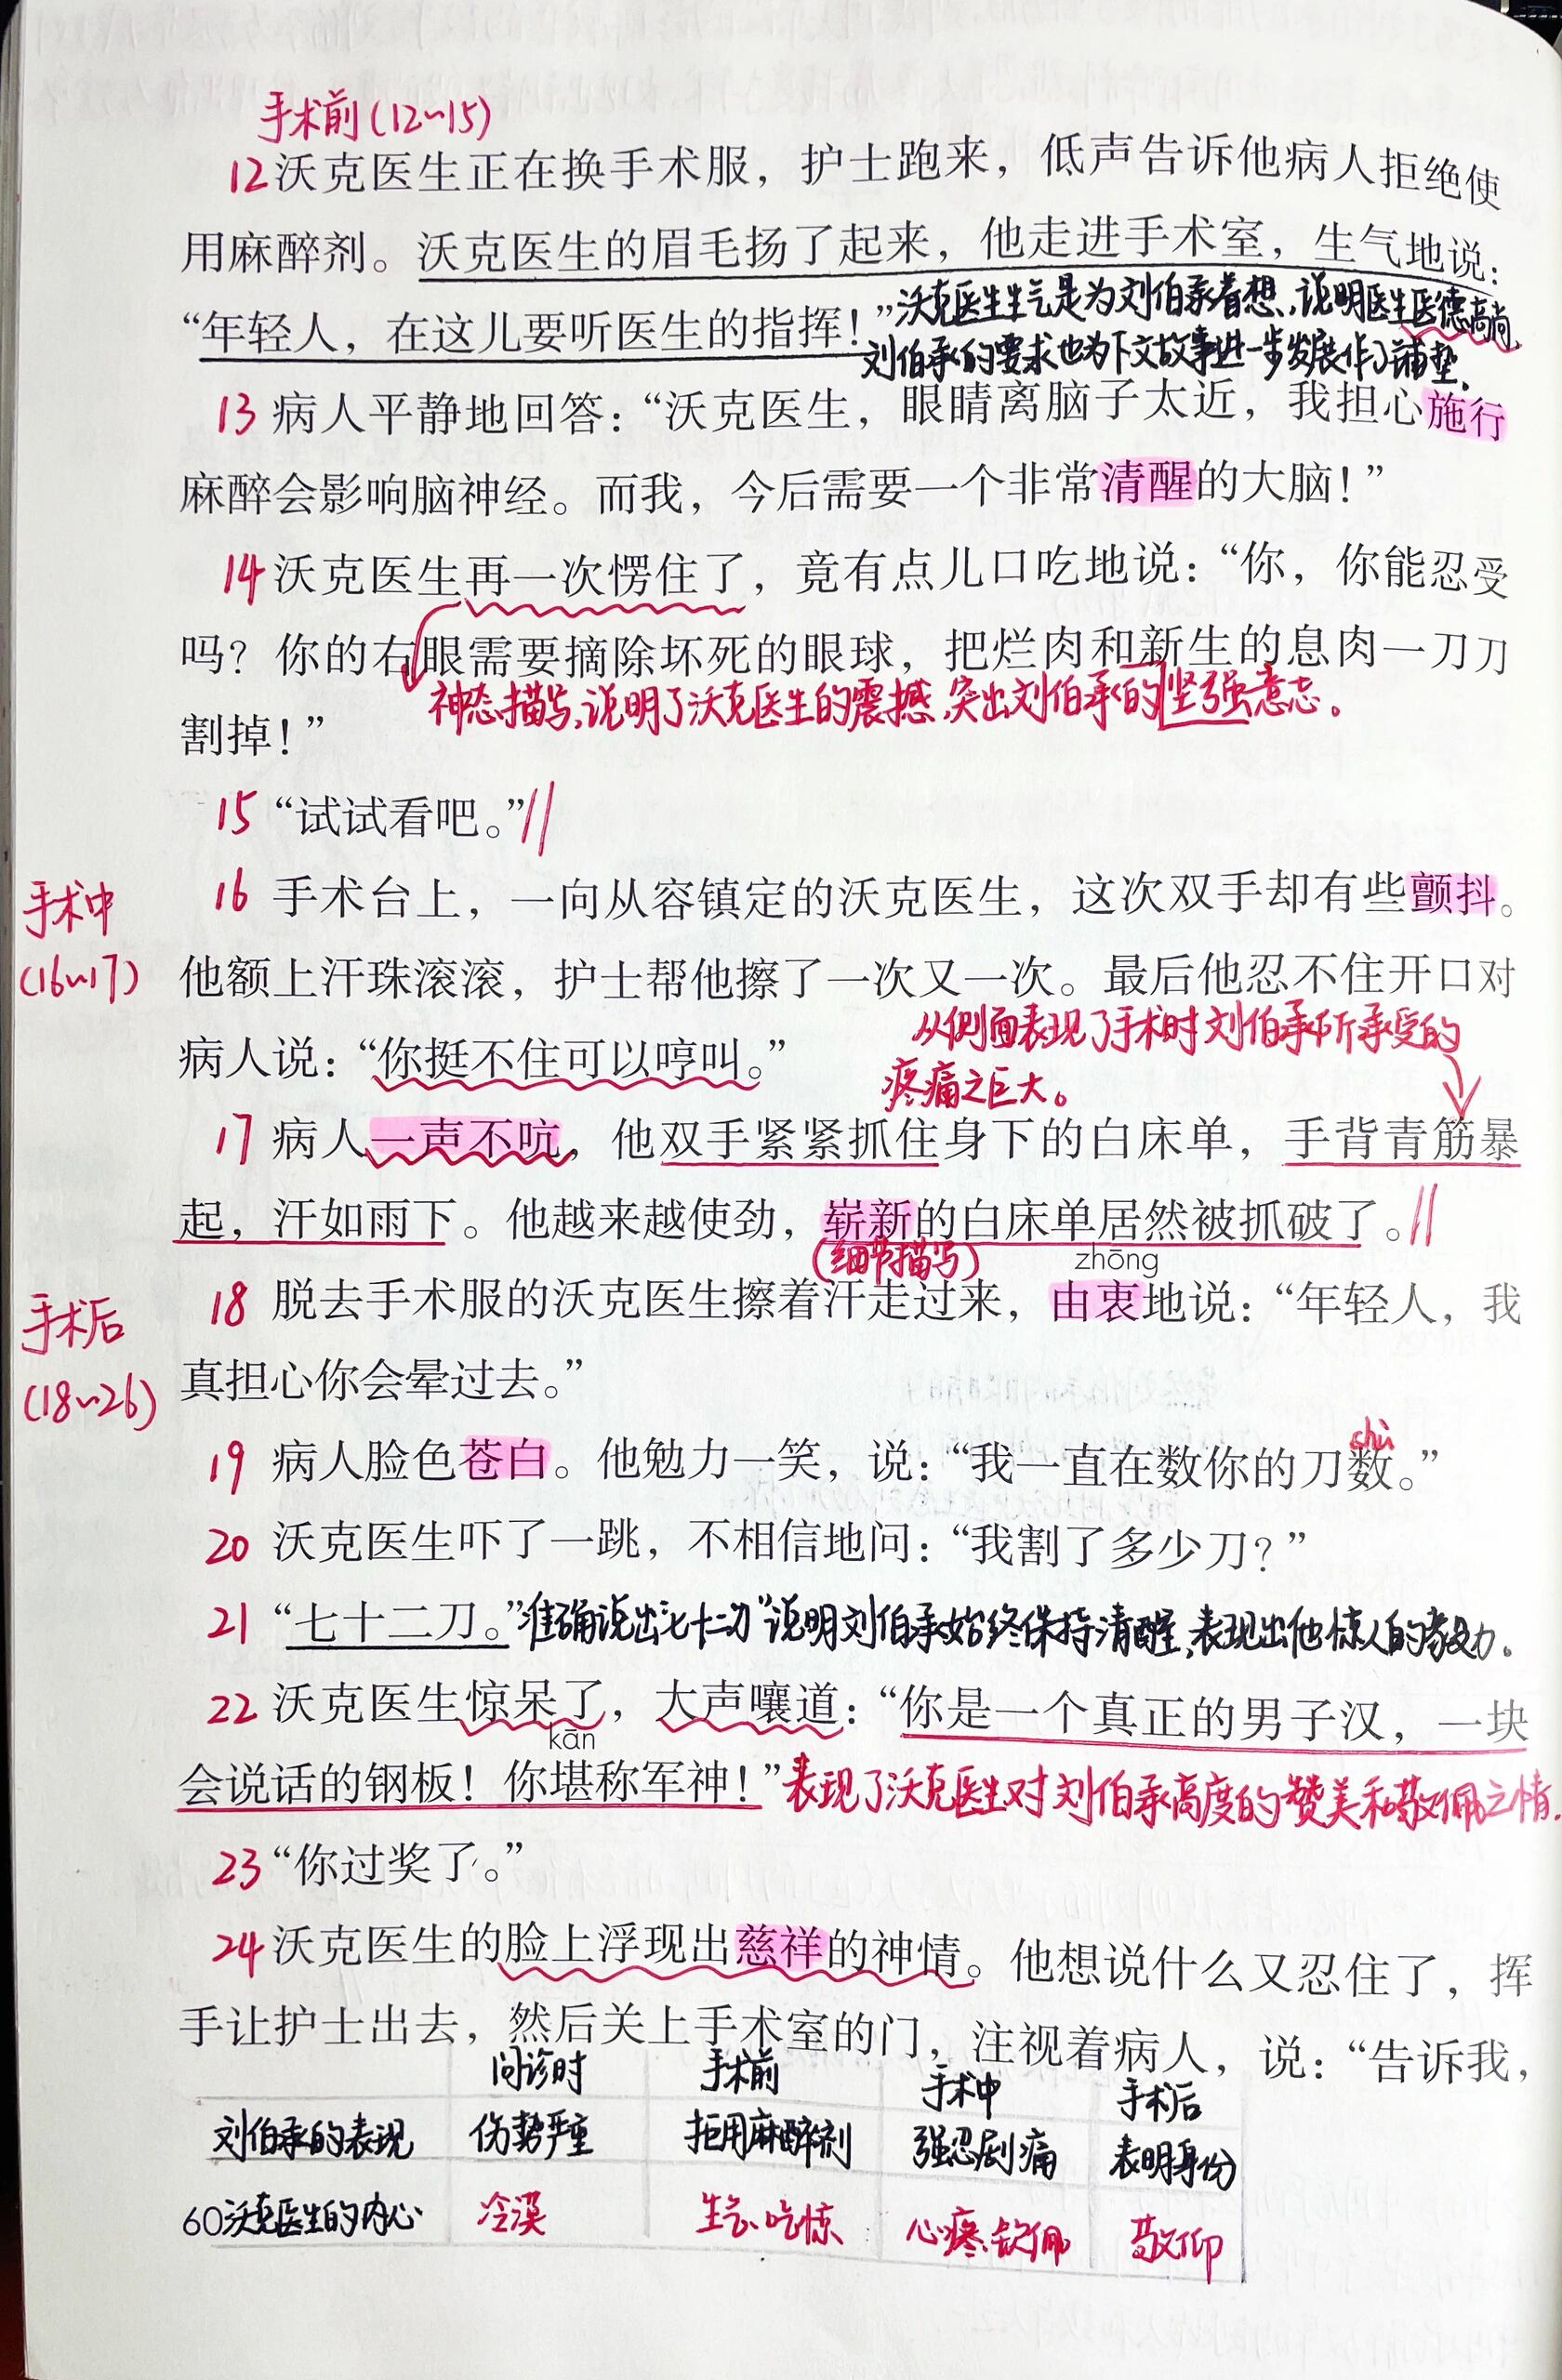 手术前(12~15)
12沃克医生正在换手术服，护士跑来，低声告诉他病人拒绝使
用麻醉剂。沃克医生的眉毛扬了起来，他走进手术室，生气地说：
“年轻人，在这儿要听医生的指挥！”沃克医生生气是为刘伯承着想，说明医生医德高尚，
刘伯承的要求也为下文故事进一步发展作了铺垫。
13 病人平静地回答：“沃克医生，眼睛离脑子太近，我担心施行
麻醉会影响脑神经。而我，今后需要一个非常清醒的大脑！”
14 沃克医生再一次愣住了，竟有点儿口吃地说：“你，你能忍受
吗？你的右眼需要摘除坏死的眼球，把烂肉和新生的息肉一刀刀
神态描写，说明了沃克医生的震撼，突出刘伯承的坚强意志。
割掉！”
15 “试试看吧。”//
手术中
(16~17)
16 手术台上，一向从容镇定的沃克医生，这次双手却有些颤抖。
他额上汗珠滚滚，护士帮他擦了一次又一次。最后他忍不住开口对
从侧面表现了手术时刘伯承所承受的
病人说：“你挺不住可以哼叫。”
疼痛之巨大。
17 病人一声不吭，他双手紧紧抓住身下的白床单，手背青筋暴
起，汗如雨下。他越来越使劲，崭新的白床单居然被抓破了。//
(细节描写)
zhōng
手术后
(18~26)
18 脱去手术服的沃克医生擦着汗走过来，由衷地说：“年轻人，我
真担心你会晕过去。”
19 病人脸色苍白。他勉力一笑，说：“我一直在数你的刀数。”
20 沃克医生吓了一跳，不相信地问：“我割了多少刀？”
21 “七十二刀。”准确说出“七十二刀”说明刘伯承始终保持清醒，表现出他惊人的毅力。
22 沃克医生惊呆了，大声嚷道：“你是一个真正的男子汉，一块
kān
会说话的钢板！你堪称军神！”表现了沃克医生对刘伯承高度的赞美和敬佩之情。
23 “你过奖了。”
24 沃克医生的脸上浮现出慈祥的神情。他想说什么又忍住了，挥
手让护士出去，然后关上手术室的门，注视着病人，说：“告诉我，
问诊时 手术前 手术中 手术后
刘伯承的表现 伤势严重 拒用麻醉剂 强忍剧痛 表明身份
沃克医生的内心 冷漠 生气、吃惊 心疼、钦佩 敬仰
60